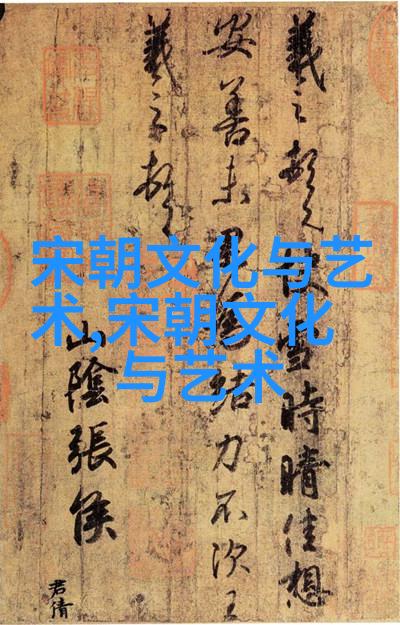 宋朝文化与艺
术,宋朝文化
与艺术
羲之頓首快雪時晴佳想
安善未果為結力不次王
羲之頓
山陰張侯
君倩